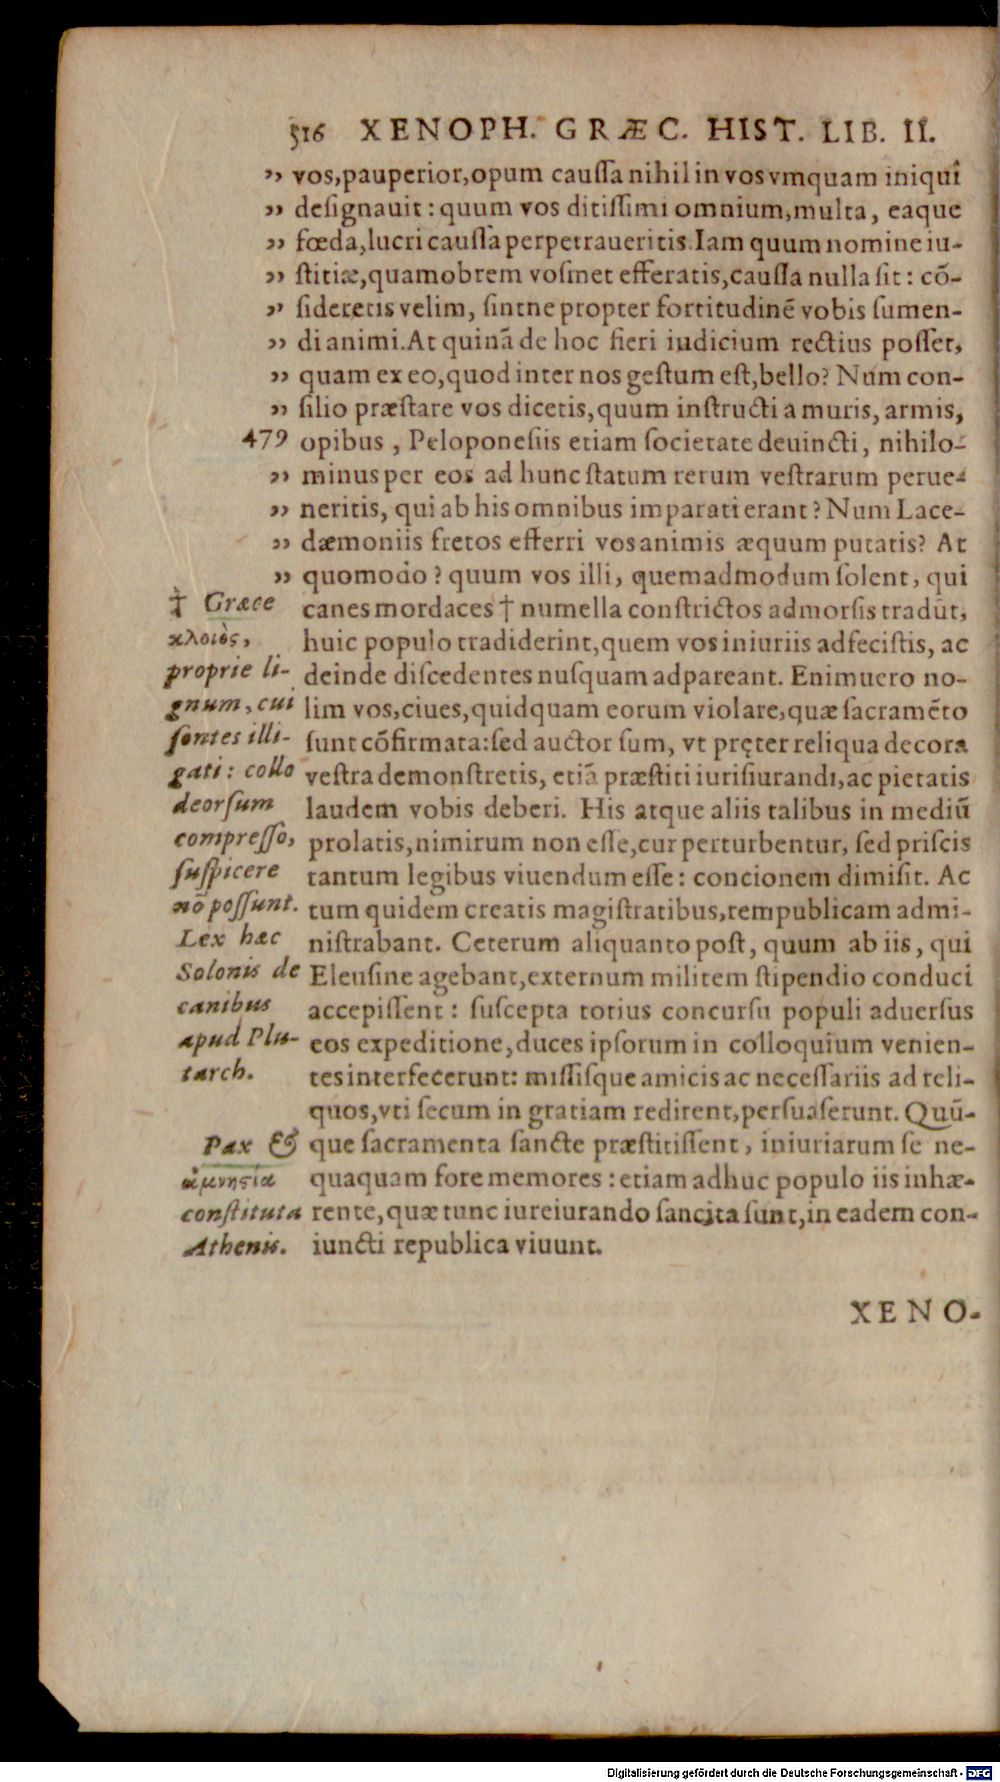 516 XENOPH. GRÆC. HIST. LIB. II.
„ vos,pauperior,opum cauſſa nihil in vos vmquam iniquî
„ deſignauit : quum vos ditiſſimi omnium,multa, eaque
„ fœda,lucri cauſſa perpetraueritis.Iam quum nomine iu-
„ ſtitiæ,quamobrem voſmet efferatis,cauſſa nulla ſit : cõ-
„ ſideretis velim, ſintne propter fortitudinẽ vobis ſumen-
„ di animi.At quinã de hoc fieri iudicium rectius poſſet,
„ quam ex eo,quod inter nos geſtum eſt,bello? Num con-
„ ſilio præſtare vos dicetis,quum inſtructi a muris, armis,
479 opibus , Peloponeſiis etiam ſocietate deuincti, nihilo-
„ minus per eos ad hunc ſtatum rerum veſtrarum perue-
„ neritis, qui ab his omnibus imparati erant? Num Lace-
„ dæmoniis fretos efferri vos animis æquum putatis? At
„ quomodo ? quum vos illi, quemadmodum ſolent, qui
canes mordaces † numella conſtrictos ad morſis tradũt,
huic populo tradiderint,quem vos iniuriis adfeciſtis, ac
deinde diſcedentes nuſquam adpareant. Enimuero no-
lim vos,ciues,quidquam eorum violare,quæ ſacramẽto
ſunt cõfirmata:ſed auctor ſum, vt pręter reliqua decora
veſtra demonſtretis, etiã præſtiti iuriſiurandi,ac pietatis
laudem vobis deberi. His atque aliis talibus in mediũ
prolatis,nimirum non eſſe,cur perturbentur, ſed priſcis
tantum legibus viuendum eſſe : concionem dimiſit. Ac
tum quidem creatis magiſtratibus,rempublicam admi-
niſtrabant. Ceterum aliquanto poſt, quum ab iis, qui
Eleuſine agebant,externum militem ſtipendio conduci
accepiſſent : ſuſcepta totius concurſu populi aduerſus
eos expeditione,duces ipſorum in colloquium venien-
tes interfecerunt: miſſiſque amicis ac neceſſariis ad reli-
quos,vti ſecum in gratiam redirent,perſuaſerunt. Quũ-
que ſacramenta ſancte præſtitiſſent, iniuriarum ſe ne-
quaquam fore memores : etiam adhuc populo iis inhæ-
rente,quæ tunc iureiurando ſancita ſunt,in eadem con-
iuncti republica viuunt.
† Græce
κλοιὸς,
proprie li-
gnum, cui
ſontes illi-
gati: collo
deorſum
compreſſo,
ſuſpicere
nõ poſſunt.
Lex hæc
Solonis de
canibus
apud Plu-
tarch.
Pax &
ἀμνηςία
conſtituta
Athenis.
XENO-
Digitalisierung gefördert durch die Deutsche Forschungsgemeinschaft - DFG